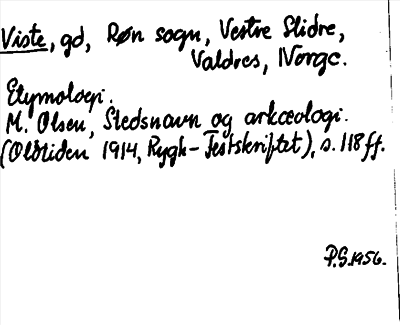 Viste, gd, Røn sogn, Vestre Slidre,
Valdres, Norge.
Etymologi.
M. Olsen, Stedsnavn og arkæologi.
(Oldtiden 1914, Rygh-Festskriftet), s. 118 ff.
P.S. 1956.